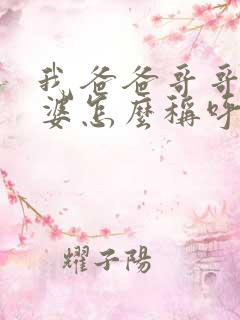 我爸爸哥哥
婆怎麼稱呼
耀子陽